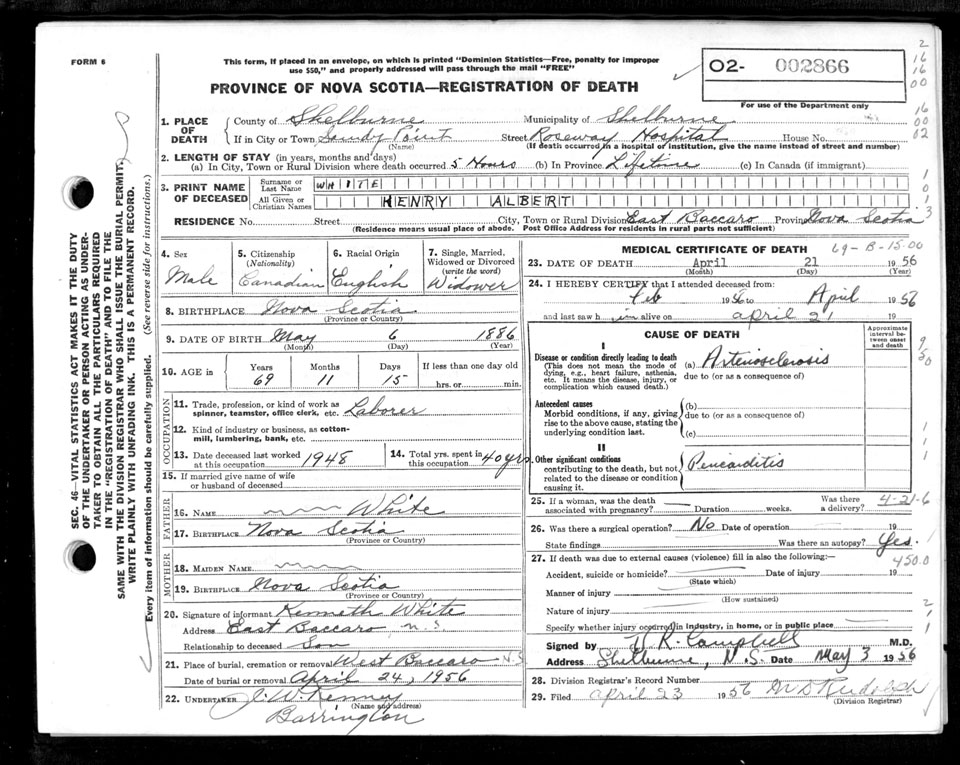 FORM 6
This form, if placed in an envelope, on which is printed "Dominion Statistics—Free, penalty for improper
use $50," and properly addressed will pass through the mail "FREE"
PROVINCE OF NOVA SCOTIA—REGISTRATION OF DEATH
02- 002866
For use of the Department only
2
16
16
00
16
00
02
1. PLACE OF DEATH
County of Shelburne Municipality of Shelburne
If in City or Town Sandy Point Street Roseway Hospital House No.
(Name) (If death occurred in a hospital or institution, give the name instead of street and number)
2. LENGTH OF STAY (in years, months and days)
(a) In City, Town or Rural Division where death occurred 5 Hours (b) In Province Lifetime (c) In Canada (if immigrant)
3. PRINT NAME OF DECEASED
Surname or Last Name WHITE
All Given or Christian Names HENRY ALBERT
RESIDENCE No. Street City, Town or Rural Division East Baccaro Province Nova Scotia
(Residence means usual place of abode. Post Office Address for residents in rural parts not sufficient)
4. Sex
Male
5. Citizenship
(Nationality)
Canadian
6. Racial Origin
English
7. Single, Married,
Widowed or Divorced
(write the word)
Widower
8. BIRTHPLACE Nova Scotia
(Province or Country)
9. DATE OF BIRTH May 6 1886
(Month) (Day) (Year)
10. AGE in
Years 69
Months 11
Days 15
If less than one day old
hrs. or min.
OCCUPATION
11. Trade, profession, or kind of work as
spinner, teamster, office clerk, etc. Laborer
12. Kind of industry or business, as cotton-
mill, lumbering, bank, etc.
13. Date deceased last worked
at this occupation 1948
14. Total yrs. spent in
this occupation 40 yrs.
15. If married give name of wife
or husband of deceased
FATHER
16. NAME White
17. BIRTHPLACE Nova Scotia
(Province or Country)
MOTHER
18. MAIDEN NAME
19. BIRTHPLACE Nova Scotia
(Province or Country)
20. Signature of informant Kenneth White
Address East Baccaro, N.S.
Relationship to deceased Son
21. Place of burial, cremation or removal West Baccaro N.S
Date of burial or removal April 24, 1956
22. UNDERTAKER J. W. Kenney
(Name and address)
Barrington
MEDICAL CERTIFICATE OF DEATH
69-B-15-00
23. DATE OF DEATH April 21 1956
(Month) (Day) (Year)
24. I HEREBY CERTIFY that I attended deceased from:
Feb 1956 to April 1956
and last saw him alive on April 21 19
CAUSE OF DEATH
Approximate
interval be-
tween onset
and death
I
Disease or condition directly leading to death
(This does not mean the mode of
dying, e.g., heart failure, asthenia,
etc. It means the disease, injury, or
complication which caused death.)
(a) Arteriosclerosis
due to (or as a consequence of)
Antecedent causes
Morbid conditions, if any, giving
rise to the above cause, stating the
underlying condition last.
(b)
due to (or as a consequence of)
(c)
II
Other significant conditions
contributing to the death, but not
related to the disease or condition
causing it.
Pericarditis
25. If a woman, was the death
associated with pregnancy? Duration weeks. Was there
a delivery? 4-21-6
26. Was there a surgical operation? No Date of operation 19
State findings Was there an autopsy? Yes.
27. If death was due to external causes (violence) fill in also the following:—
450.0
Accident, suicide or homicide? Date of injury 19
(State which)
Manner of injury
(How sustained)
Nature of injury
Specify whether injury occurred in industry, in home, or in public place
Signed by H. K. Campbell M.D.
Address Shelburne, N.S. Date May 3 1956
28. Division Registrar's Record Number
29. Filed April 23 1956
(Division Registrar)
SEC. 46—VITAL STATISTICS ACT MAKES IT THE DUTY
OF THE UNDERTAKER OR PERSON ACTING AS UNDER-
TAKER TO OBTAIN ALL THE PARTICULARS REQUIRED
IN THE "REGISTRATION OF DEATH" AND TO FILE THE
SAME WITH THE DIVISION REGISTRAR WHO SHALL ISSUE THE BURIAL PERMIT.
WRITE PLAINLY WITH UNFADING INK. THIS IS A PERMANENT RECORD.
Every item of information should be carefully supplied. (See reverse side for instructions.)